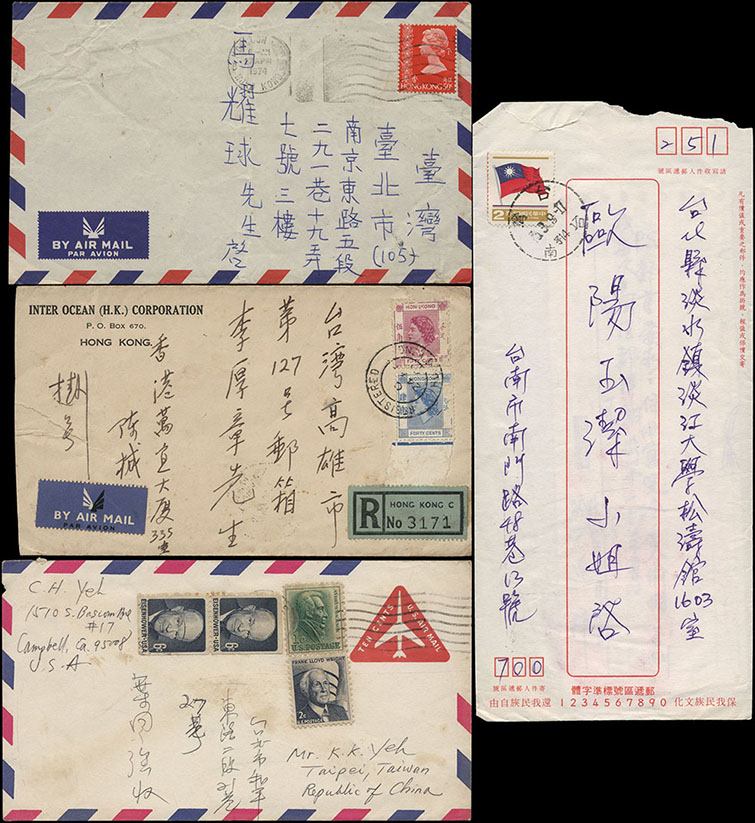 1974
HONG KONG
HONG KONG 50¢
馬耀球先生啓
七號三樓
二九一巷十九弄
南京東路五段
臺北市(105)
臺灣
BY AIR MAIL
PAR AVION
INTER OCEAN (H.K.) CORPORATION
P. O. Box 670.
HONG KONG.
HONG KONG
REGISTERED
FORTY CENTS
台灣高雄市
第127号郵箱
李厚章先生
香港萬宜大厦335室
陈械
掛号
BY AIR MAIL
PAR AVION
R
HONG KONG C
No 3171
C. H. Yeh
1510 S. Bascom Ave
#17
Campbell, Ca. 95008
U.S.A
EISENHOWER·USA
6c
EISENHOWER·USA
6c
1c
U.S.POSTAGE
FRANK LLOYD WRIGHT
2c
U.S. POSTAGE
TEN CENTS
U.S. AIR MAIL
台北市和平
東路一段
27巷
收
Mr. K.K. Yeh
Taipei, Taiwan
Republic of China
251
請寫收件人郵遞區號
凡有價值或重要之郵件，均應作為掛號、報值或保價交寄
台北縣淡水鎮淡江大學松濤館1603室
歐陽玉潔小姐啓
台南市南門路48巷13號
700
寄件人郵遞區號
郵遞區號標準字體
1234567890
保我民族文化
還我民族自由